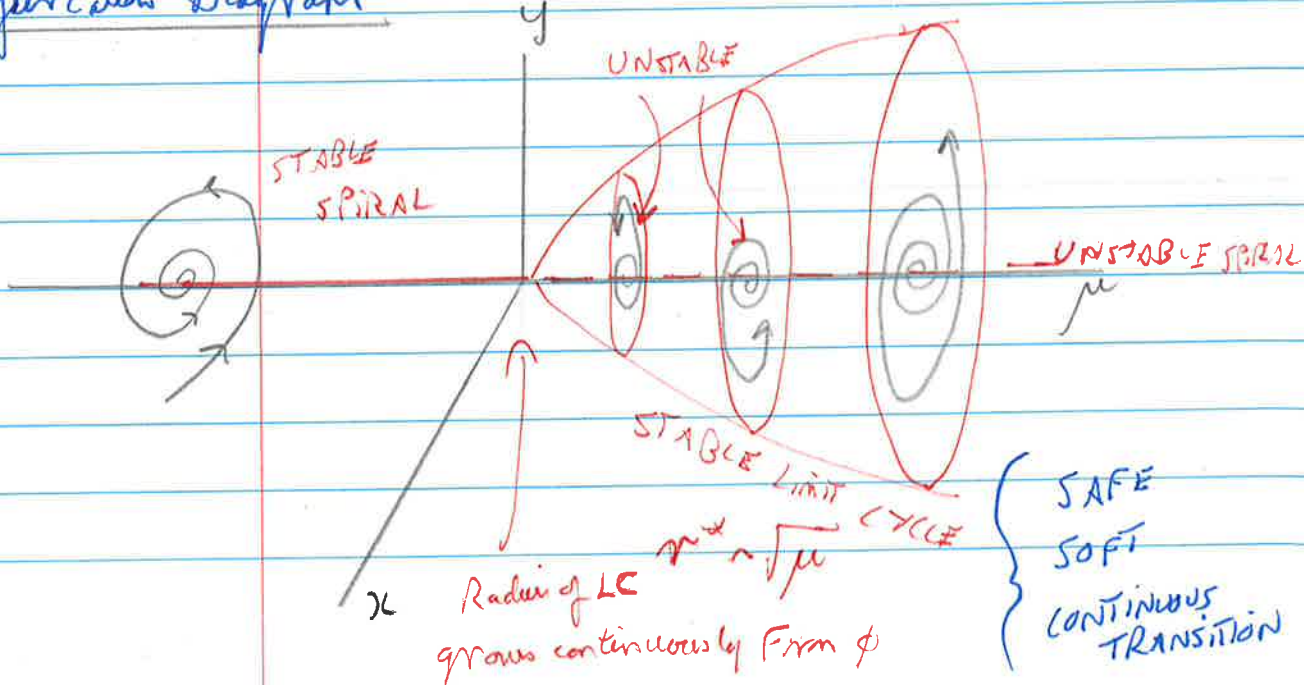 Diagram
y
UNSTABLE
STABLE
SPIRAL
UNSTABLE SPIRAL
μ
STABLE LIMIT CYCLE
r* ~ √μ
x
Radius of LC
grows continuously From ϕ
SAFE
SOFT
CONTINUOUS
TRANSITION